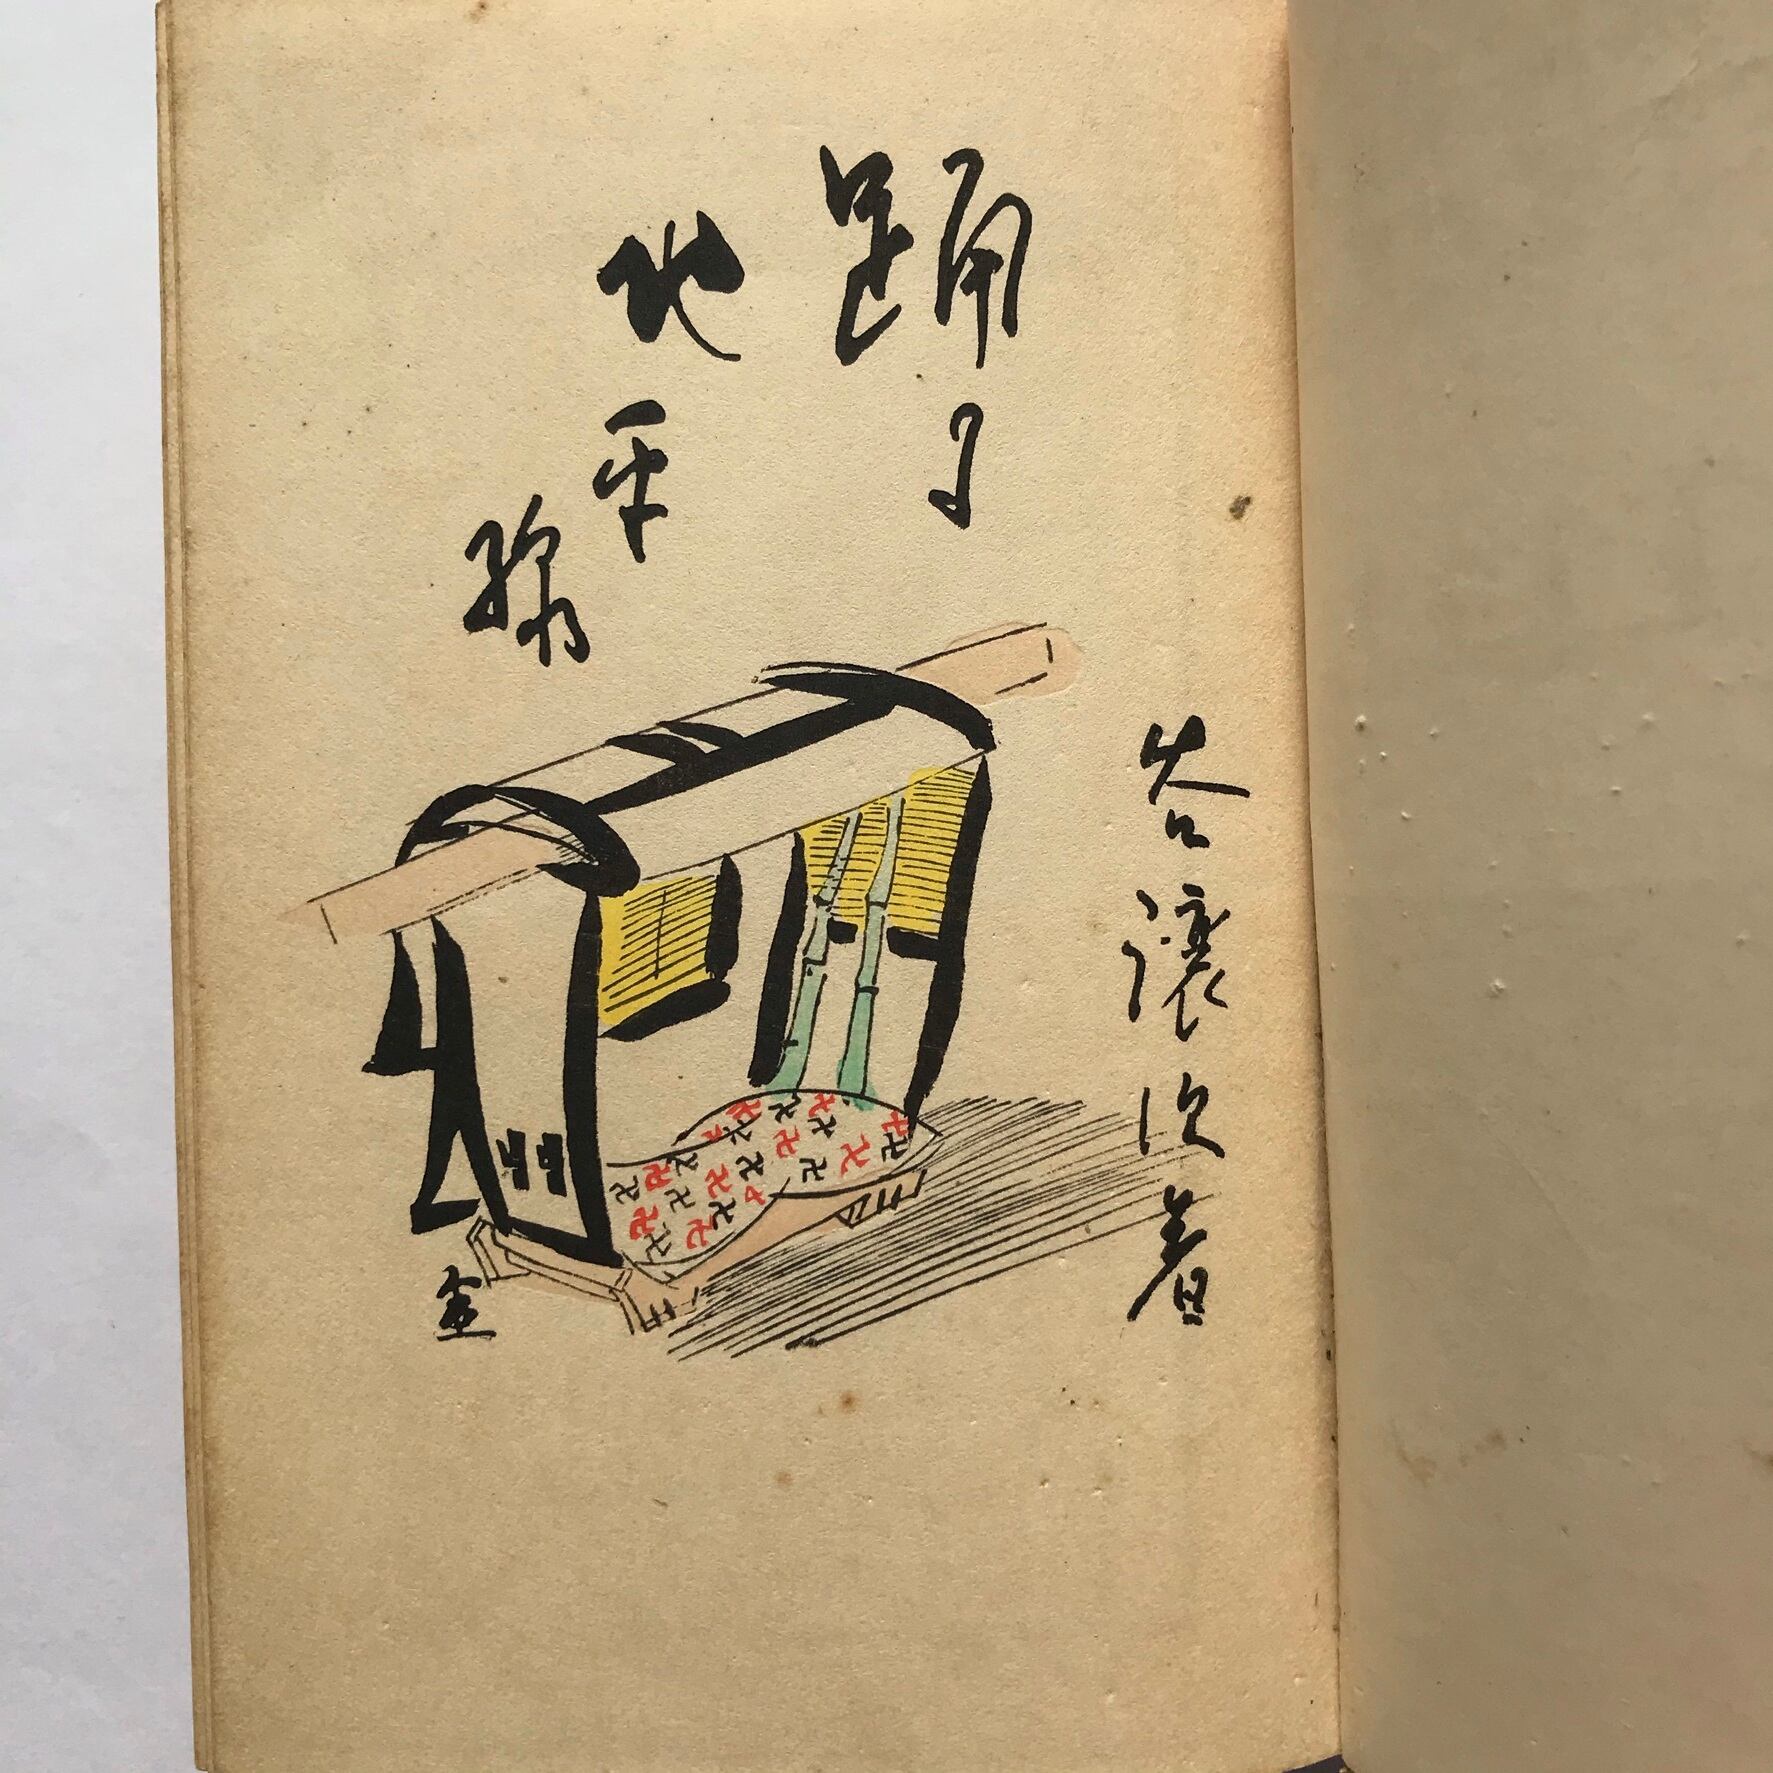 踊る
地平線
谷讓次著